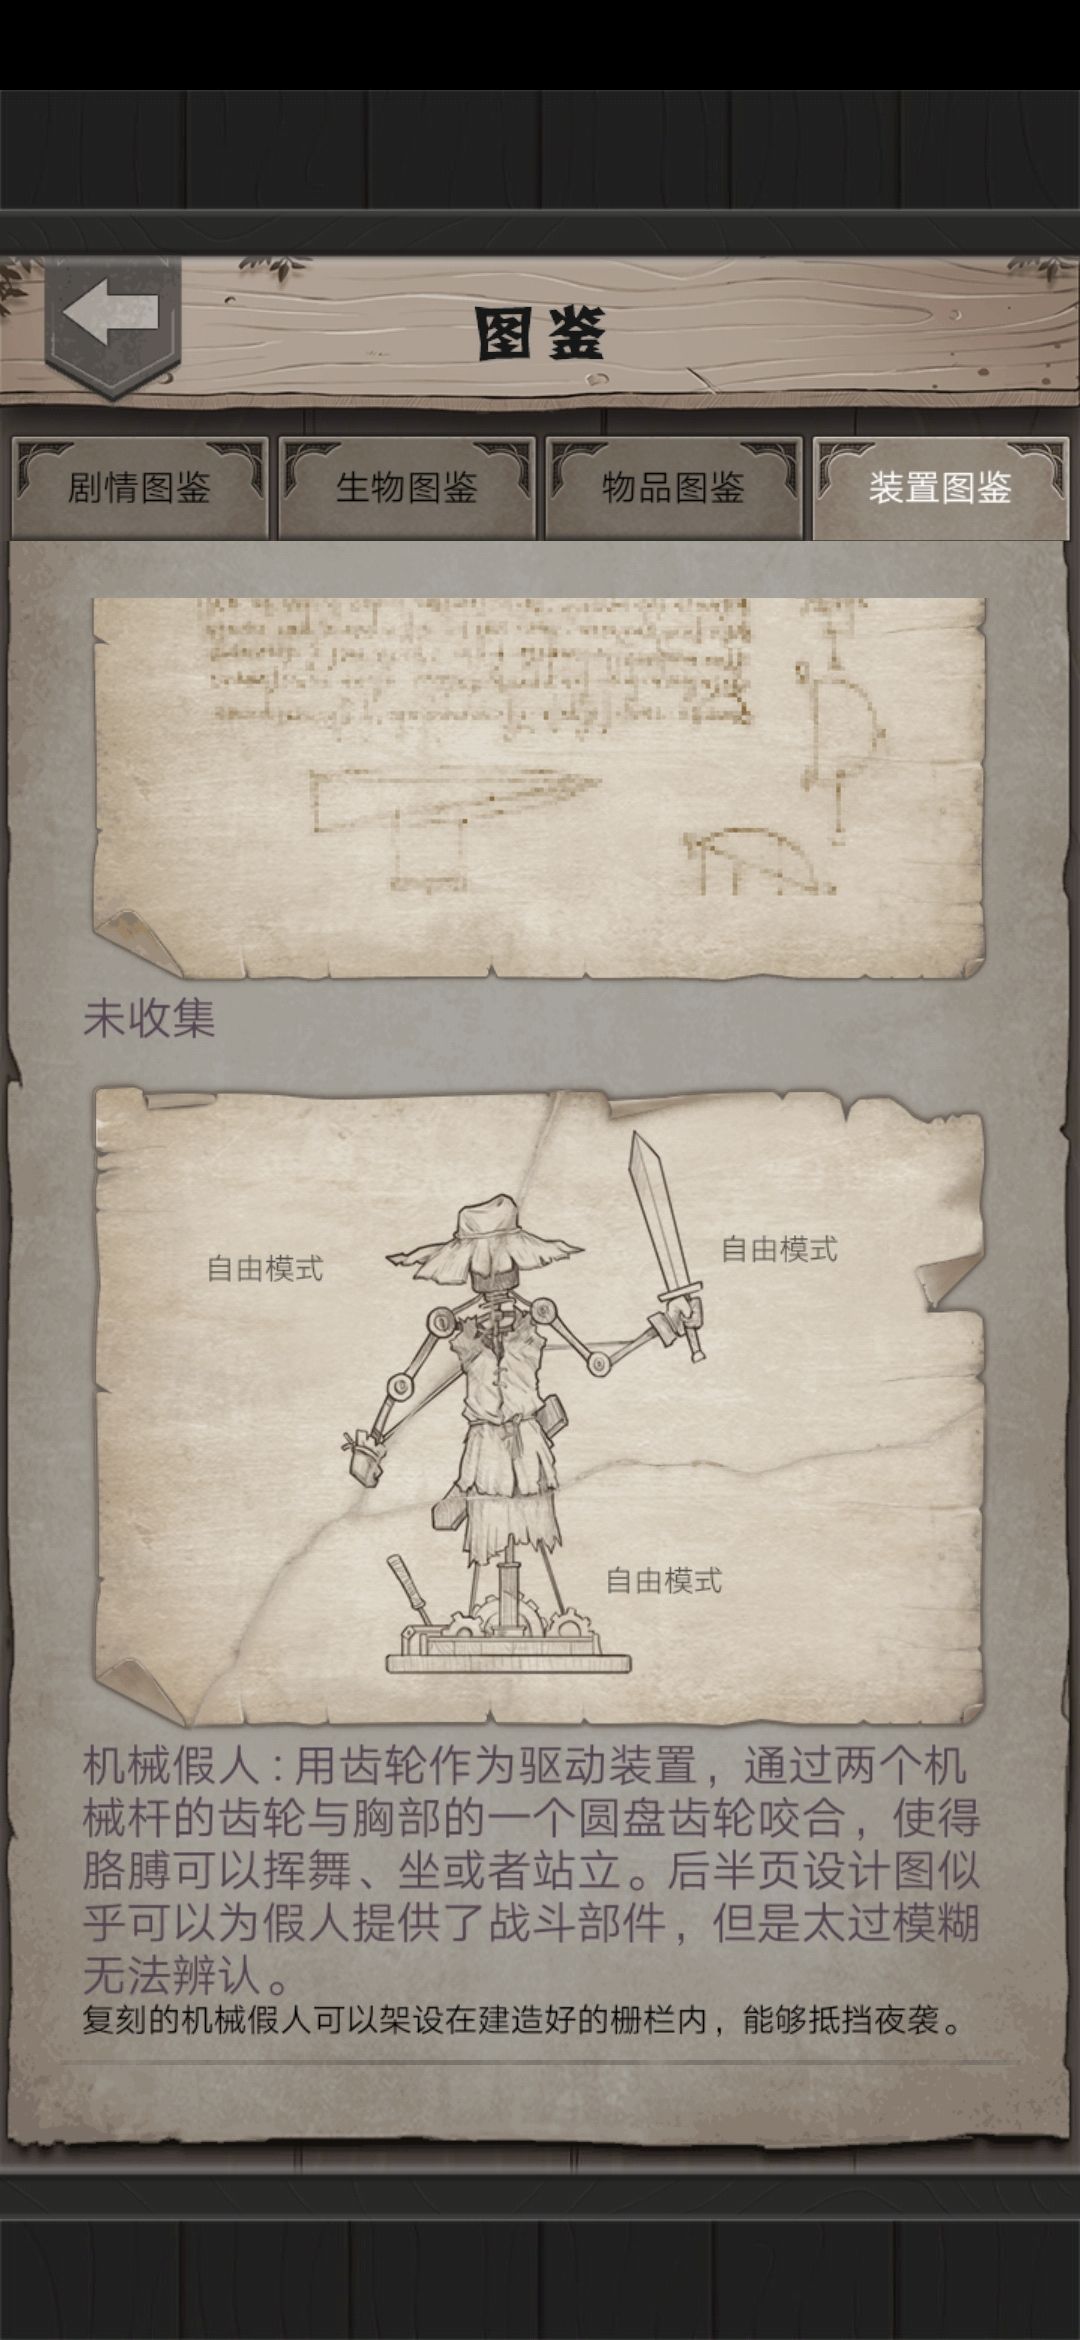 图鉴
剧情图鉴
生物图鉴
物品图鉴
装置图鉴
未收集
自由模式
自由模式
自由模式
机械假人：用齿轮作为驱动装置，通过两个机
械杆的齿轮与胸部的一个圆盘齿轮咬合，使得
胳膊可以挥舞、坐或者站立。后半页设计图似
乎可以为假人提供了战斗部件，但是太过模糊
无法辨认。
复刻的机械假人可以架设在建造好的栅栏内，能够抵挡夜袭。